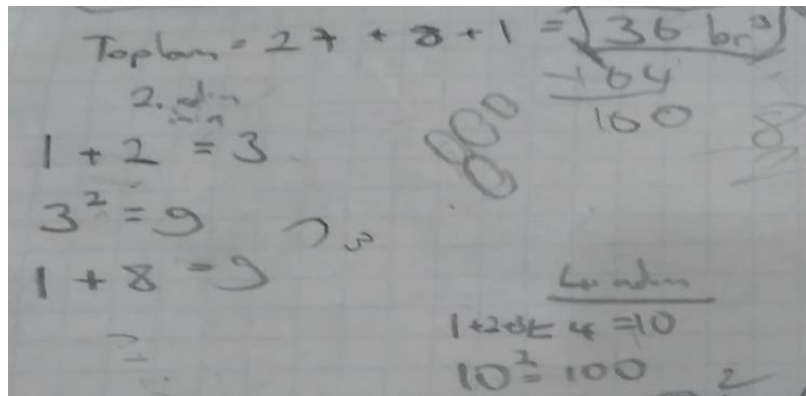 Toplam = 27 + 8 + 1 = 36 br³
64
100
2. adım
1 + 2 = 3
3² = 9
1 + 8 = 9
4. adım
1+2+3+4 = 10
10² = 100
2